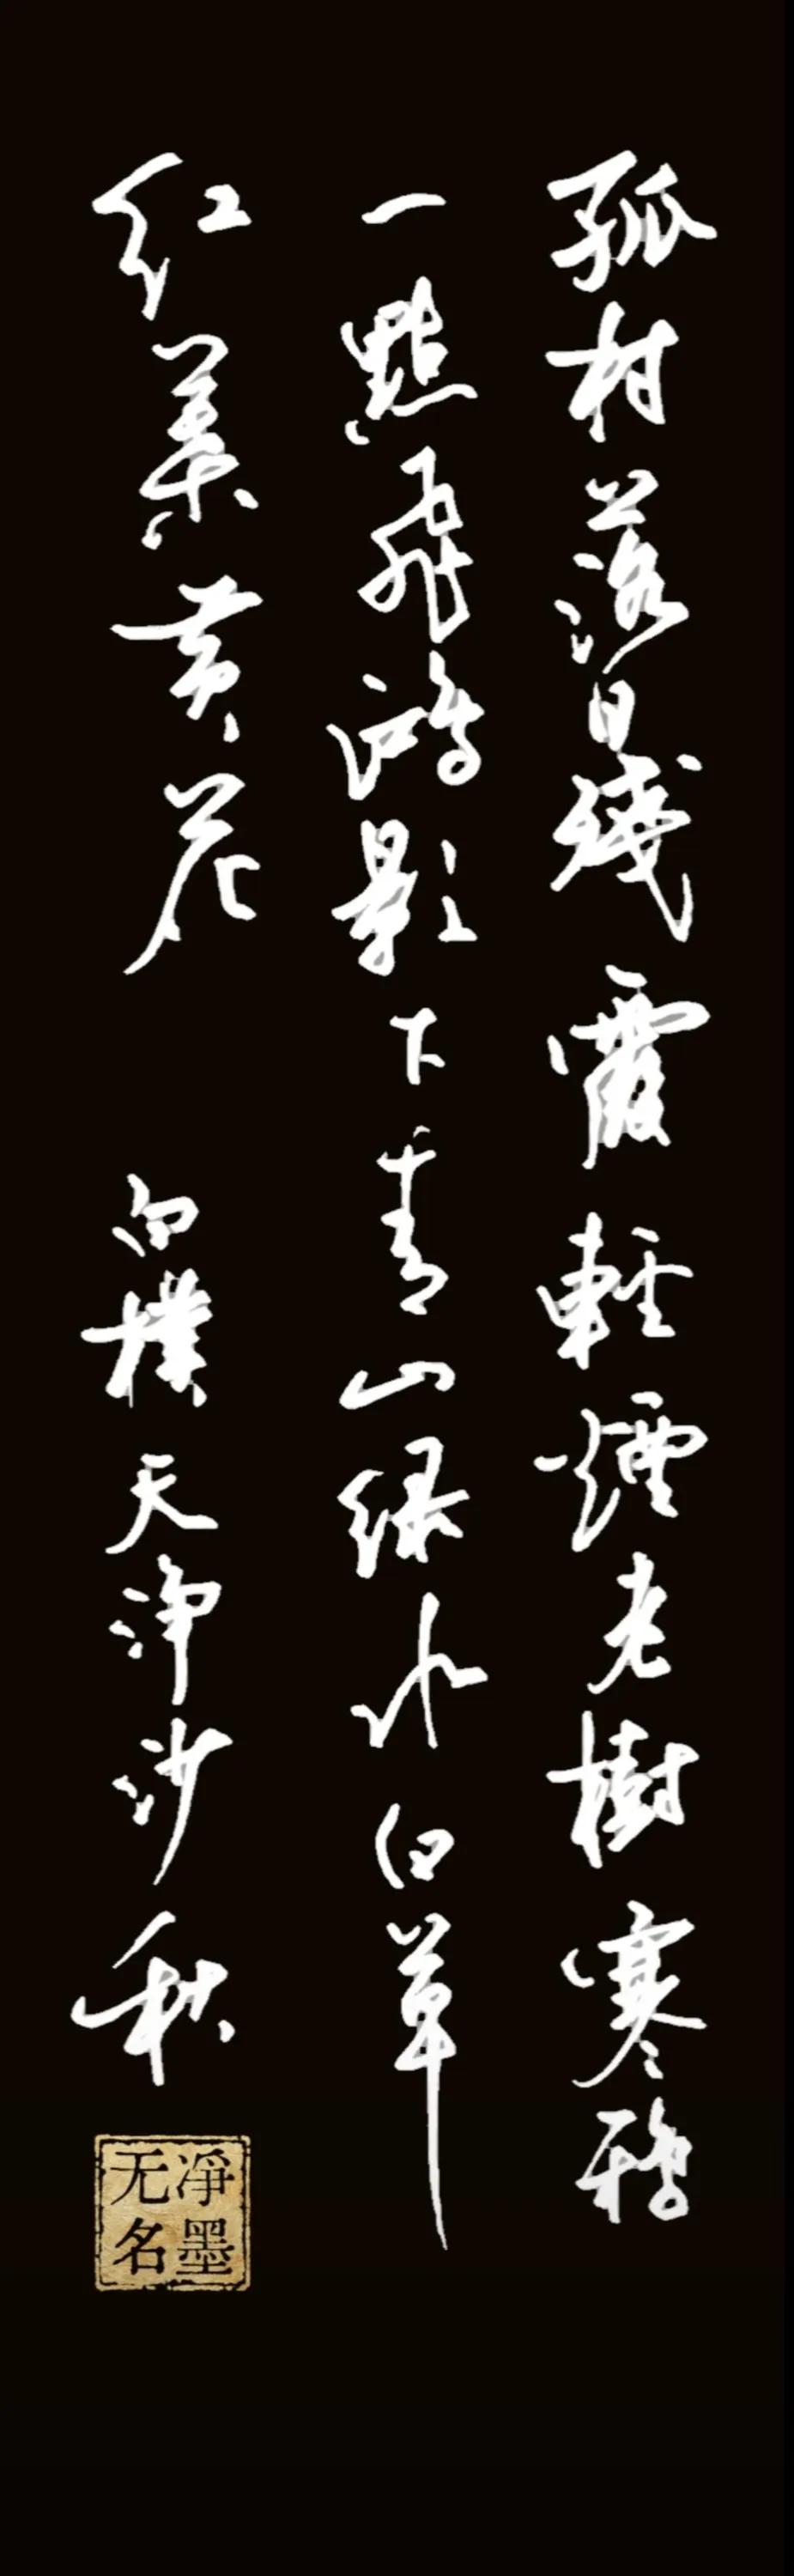 孤村落日残霞輕煙老樹寒鴉
一點飛鴻影下青山绿水白草
红葉黄花
白樸天淨沙秋
净墨
无名